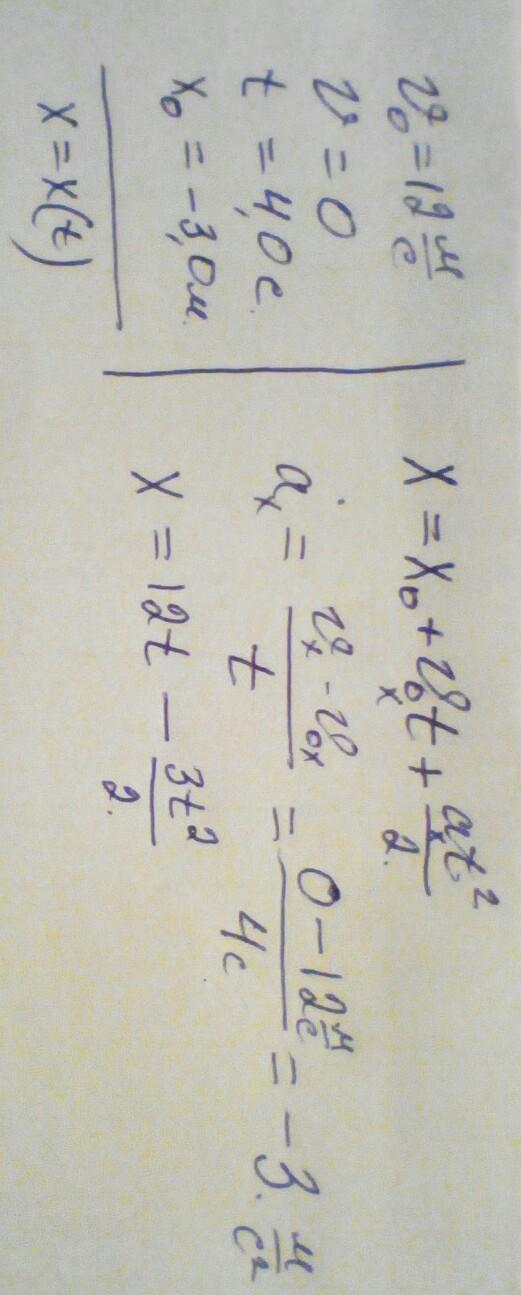 υ₀ = 12 м/с
υ = 0
t = 4,0 с.
x₀ = -3,0 м.
x = x(t)
x = x₀ + υ₀ₓt + aₓt²/2.
aₓ = (υₓ - υ₀ₓ)/t = (0 - 12 м/с)/4с = -3 м/с²
x = 12t - 3t²/2.